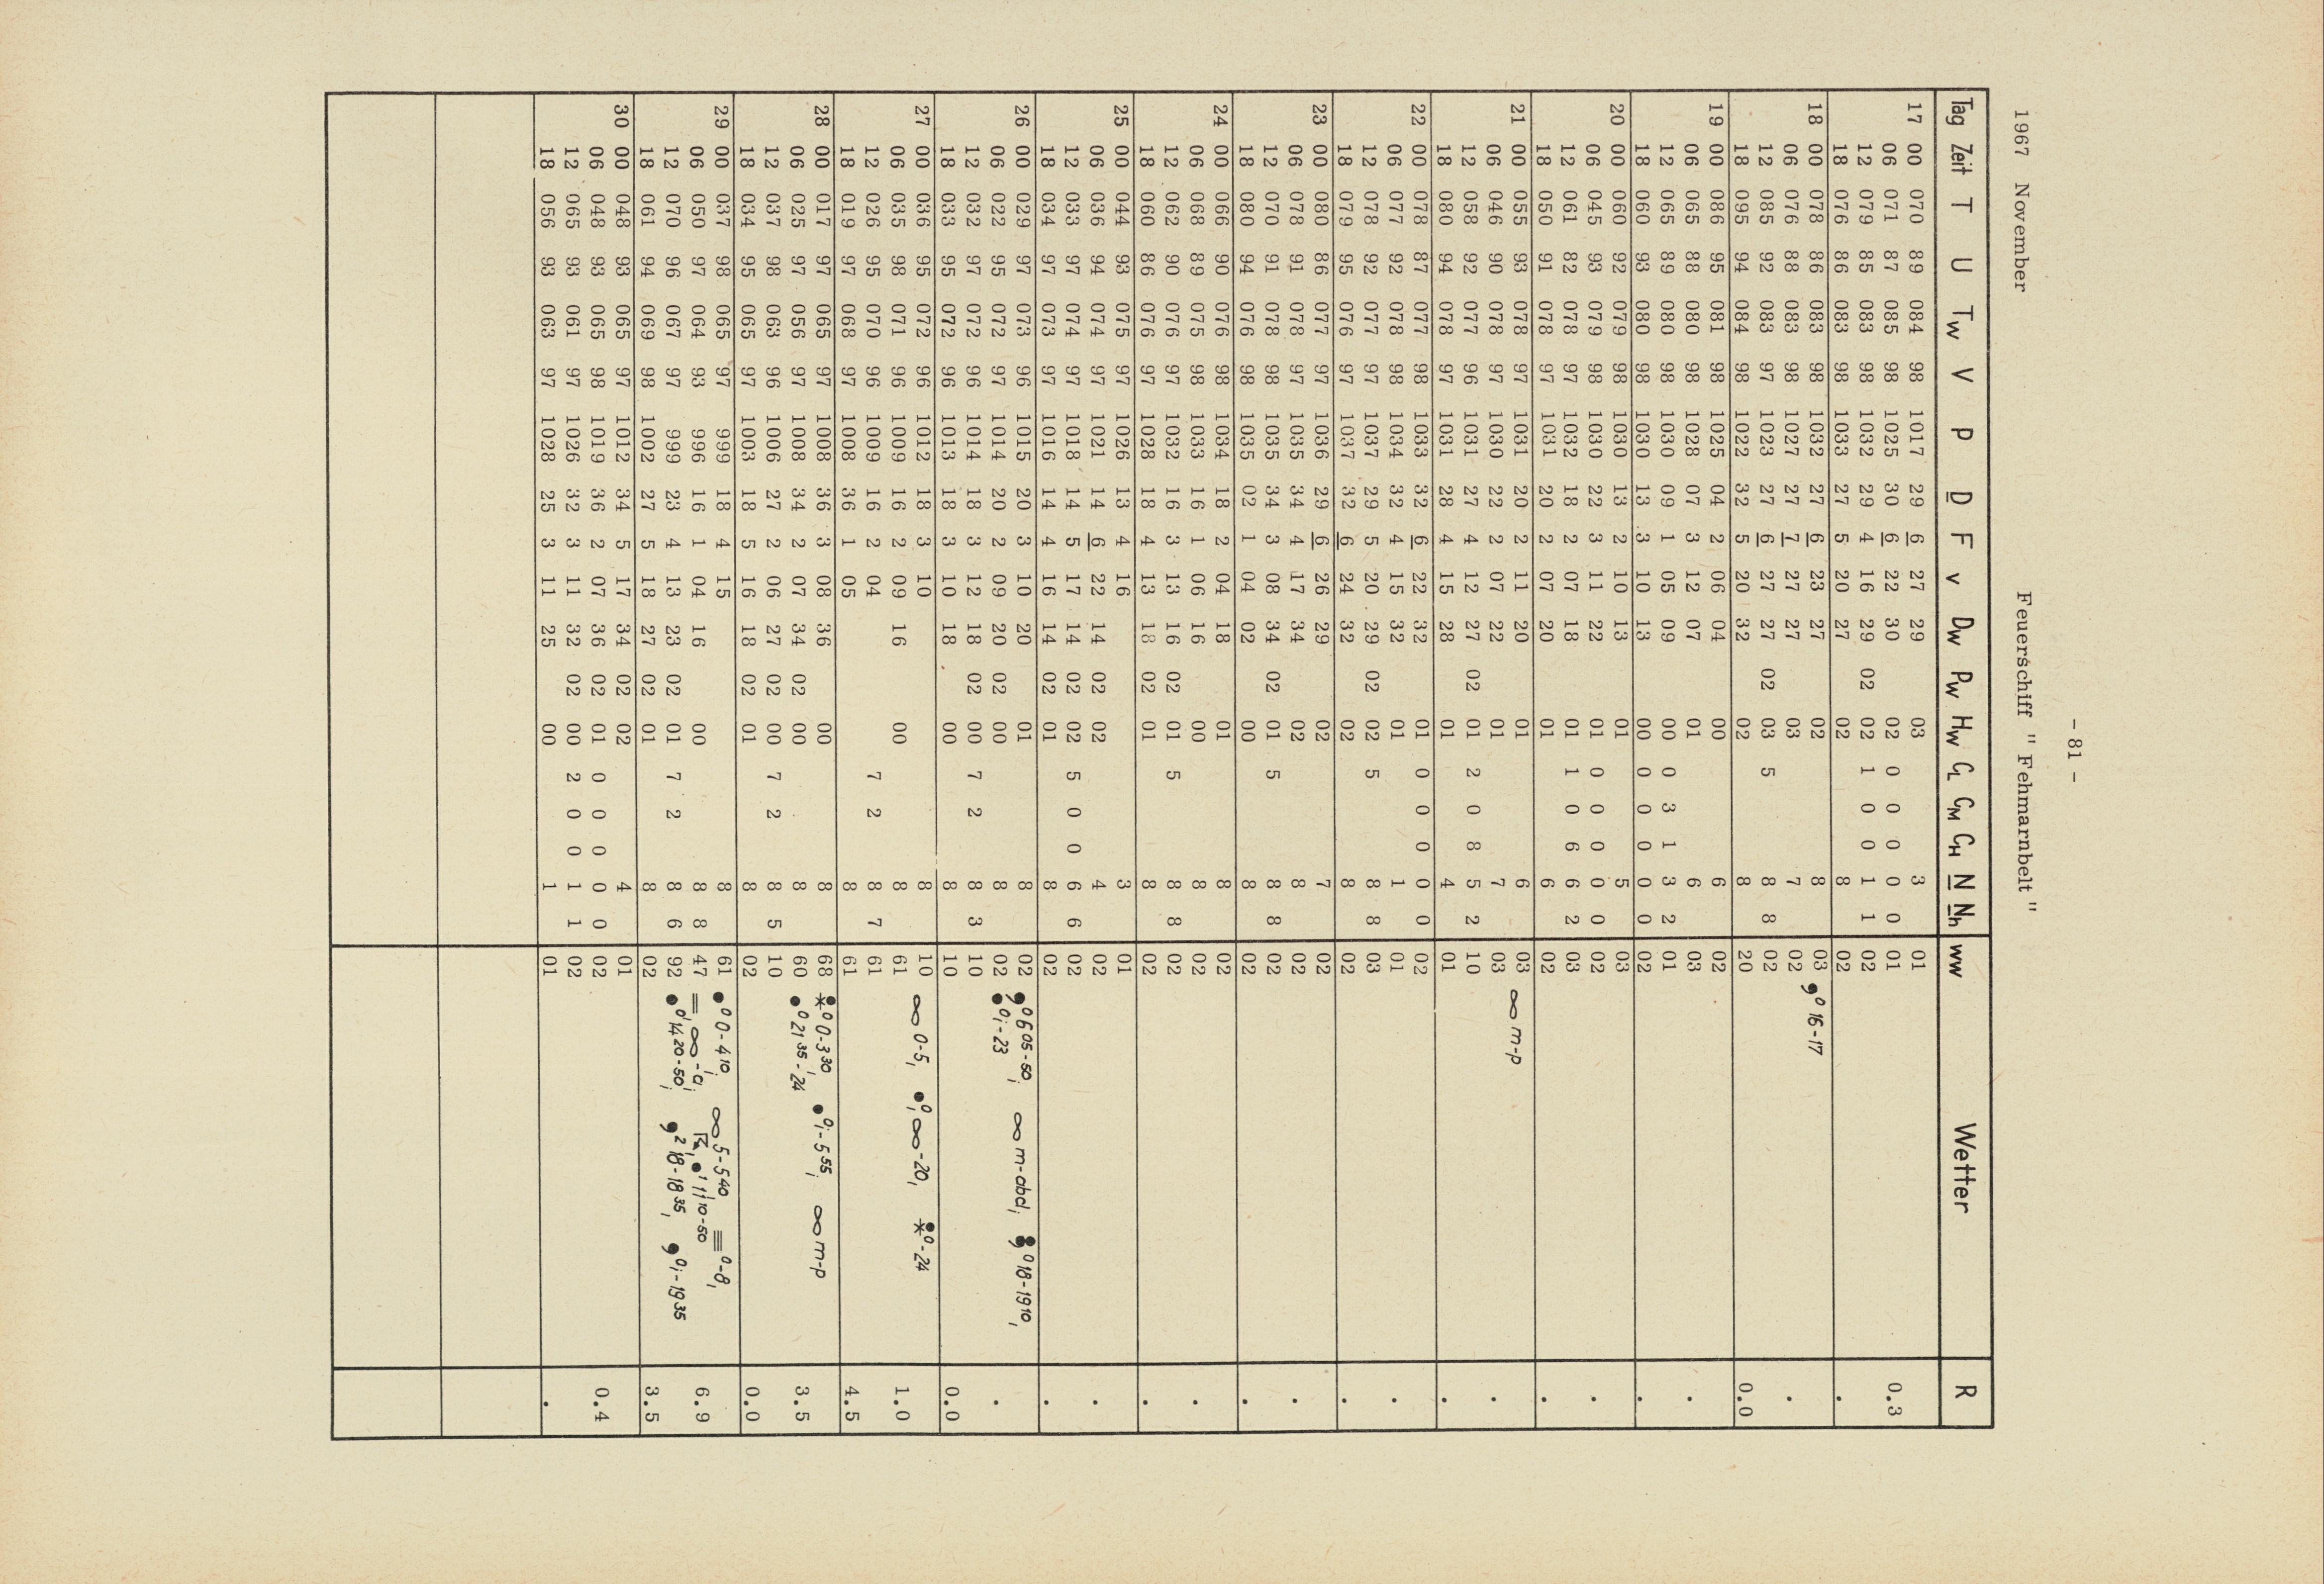 - 81 -
1967 November Feuerschiff " Fehmarnbelt "
Tag Zeit T U Tw V P D F v Dw Pw Hw CL CM CH N Nh ww Wetter R
17 00 070 89 084 98 1017 29 6 27 29 03 3 01
06 071 87 085 98 1025 30 6 22 30 02 0 0 0 0 0 01 0.3
12 079 85 083 98 1032 29 4 16 29 02 02 1 0 0 1 1 02
18 076 86 083 98 1033 27 5 20 27 02 8 02 .
18 00 078 86 083 98 1032 27 6 23 27 02 8 03 ❟⁰ 16-17
06 076 88 083 98 1027 27 7 27 27 03 7 02 .
12 085 92 083 97 1023 27 6 27 27 02 03 5 8 8 02
18 095 94 084 98 1022 32 5 20 32 02 8 20 0.0
19 00 086 95 081 98 1025 04 2 06 04 00 6 02
06 065 88 080 98 1028 07 3 12 07 01 6 03 .
12 065 89 080 98 1030 09 1 05 09 00 0 3 1 3 2 01
18 060 93 080 98 1030 13 3 10 13 00 0 0 0 0 0 02 .
20 00 060 92 079 98 1030 13 2 10 13 01 5 03
06 045 93 079 98 1030 22 3 11 22 01 0 0 0 0 0 02 .
12 061 82 078 97 1032 18 2 07 18 01 1 0 6 6 2 03
18 050 91 078 97 1031 20 2 07 20 01 6 02 .
21 00 055 93 078 97 1031 20 2 11 20 01 6 03 ∞ m-p
06 046 90 078 97 1030 22 2 07 22 01 7 03 .
12 058 92 077 96 1031 27 4 12 27 02 01 2 0 8 5 2 10
18 080 94 078 97 1031 28 4 15 28 01 4 01 .
22 00 078 87 077 98 1033 32 6 22 32 01 0 0 0 0 0 02
06 077 92 078 98 1034 32 4 15 32 01 1 01 .
12 078 92 077 98 1037 29 5 20 29 02 02 5 8 8 03
18 079 95 076 97 1037 32 6 24 32 02 8 02 .
23 00 080 86 077 97 1036 29 6 26 29 02 7 02
06 078 91 078 97 1035 34 4 17 34 02 8 02 .
12 070 91 078 98 1035 34 3 08 34 02 01 5 8 8 02
18 080 94 076 98 1035 02 1 04 02 00 8 02 .
24 00 066 90 076 98 1034 18 2 04 18 01 8 02
06 068 89 075 98 1033 16 1 06 16 00 8 02 .
12 062 90 076 97 1032 16 3 13 16 02 01 5 8 8 02
18 060 86 076 97 1028 18 4 13 18 02 01 8 02 .
25 00 044 93 075 97 1026 13 4 16 3 01
06 036 94 074 97 1021 14 6 22 14 02 02 4 02 .
12 033 97 074 97 1018 14 5 17 14 02 02 5 0 0 6 6 02
18 034 97 073 97 1016 14 4 16 14 02 01 8 02 .
26 00 029 97 073 96 1015 20 3 10 20 01 8 02 ❟⁰ 6⁰⁵-⁵⁰, ∞ m-abd, ⁰ 18-19¹⁰,
06 022 95 072 97 1014 20 2 09 20 02 00 8 02 ●⁰ i-23 .
12 032 97 072 96 1014 18 3 12 18 02 00 7 2 8 3 10
18 033 95 072 96 1013 18 3 10 18 00 8 10 0.0
27 00 036 95 072 96 1012 18 3 10 8 10 ∞ 0-5, ●⁰, ∞-20, ⁰-24
06 035 98 071 96 1009 16 2 09 16 00 8 61 1.0
12 026 95 070 96 1009 16 2 04 7 2 8 7 61
18 019 97 068 97 1008 36 1 05 8 61 4.5
28 00 017 97 065 97 1008 36 3 08 36 00 8 68 ⁰ 0-3³⁰, ●⁰ i-5⁵⁵, ∞ m-p
06 025 97 056 97 1008 34 2 07 34 02 00 8 60 ●⁰ 21³⁵-24 3.5
12 037 98 063 96 1006 27 2 06 27 02 00 7 2 8 5 10
18 034 95 065 97 1003 18 5 16 18 02 01 8 02 0.0
29 00 037 98 065 97 999 18 4 15 8 61 ●⁰ 0-4¹⁰, ∞ 5-5⁴⁰, ≡⁰-8,
06 050 97 064 93 996 16 1 04 16 00 8 8 47 =, ∞-a, ●¹ 11¹⁰-⁵⁰ 6.9
12 070 96 067 97 999 23 4 13 23 02 01 7 2 8 6 92 ●⁰ 14²⁰-⁵⁰, ❟² 18-18³⁵, ❟⁰ i-19³⁵
18 061 94 069 98 1002 27 5 18 27 02 01 8 02 3.5
30 00 048 93 065 97 1012 34 5 17 34 02 02 4 01
06 048 93 065 98 1019 36 2 07 36 02 01 0 0 0 0 0 02 0.4
12 065 93 061 97 1026 32 3 11 32 02 00 2 0 0 1 1 02
18 056 93 063 97 1028 25 3 11 25 00 1 01 .